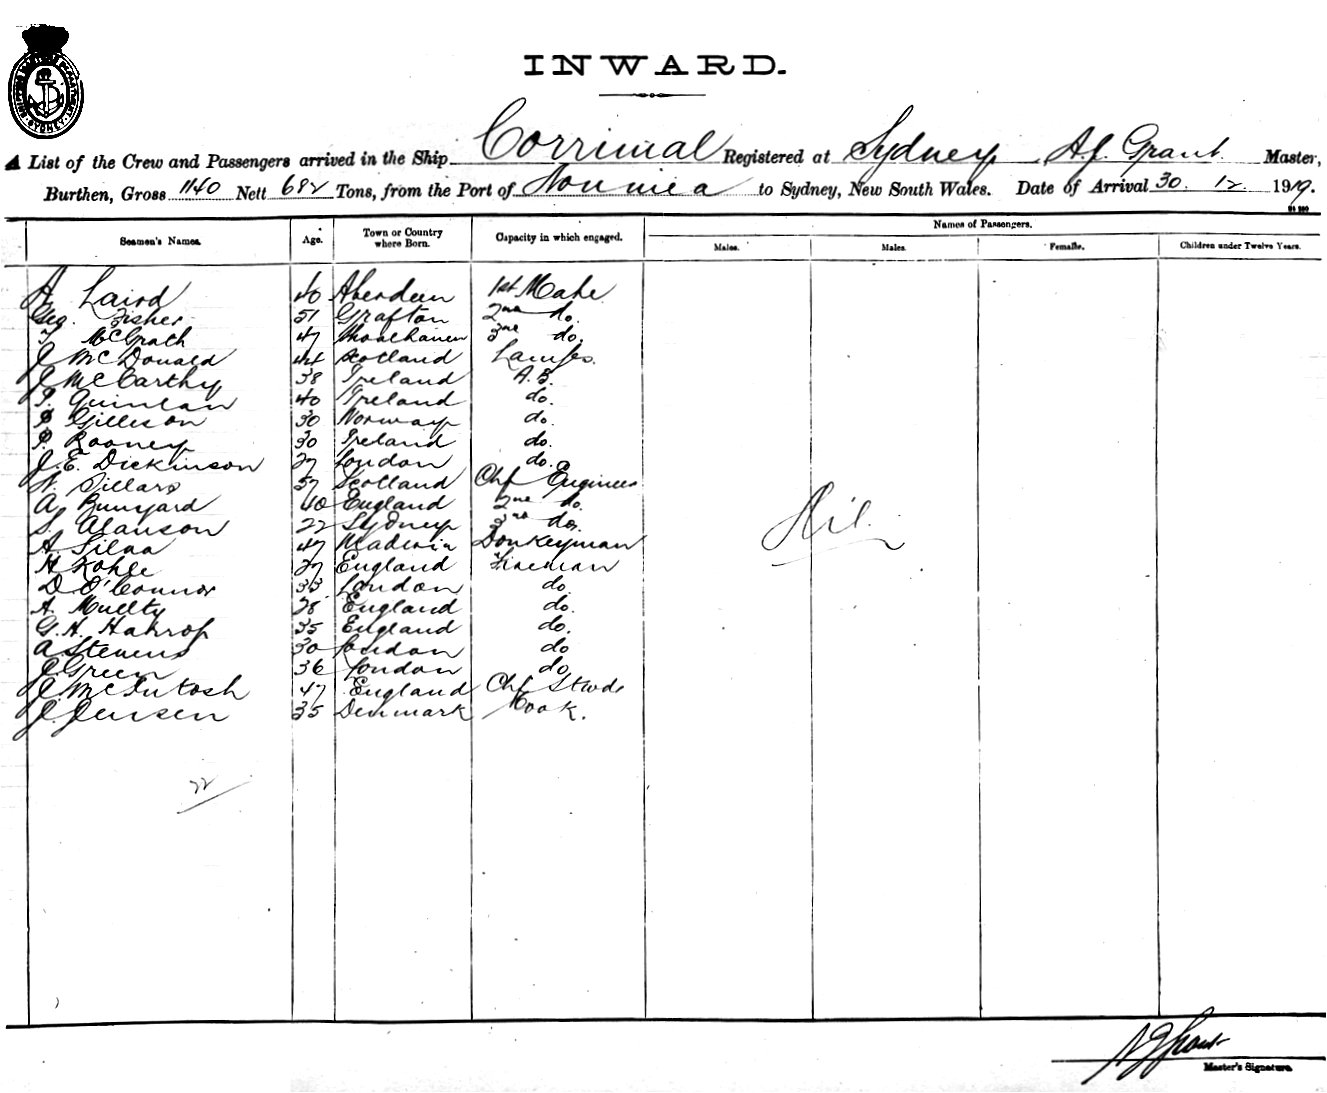 INWARD.
A List of the Crew and Passengers arrived in the Ship Corrimal Registered at Sydney A.J. Grant Master,
Burthen, Gross 1140 Nett 682 Tons, from the Port of Noumea to Sydney, New South Wales. Date of Arrival 30. 12. 1919.
SYDNEY
Seamen's Names. Age. Town or Country where Born. Capacity in which engaged. Names of Passengers.
Males. Males. Females. Children under Twelve Years.
A. Laird 40 Aberdeen 1st Mate
Geo. Fisher 51 Grafton 2nd do.
T. McGrath 47 Shoalhaven 3rd do.
J McDonald 44 Scotland Lamps.
J McCarthy 38 Ireland A.B.
P. Quinlan 40 Ireland do.
Gilleson 30 Norway do.
P. Rooney 30 Ireland do.
J.E. Dickinson 27 London do.
W. Sillars 57 Scotland Chf Engineer
A. Bunyard 40 England 2nd do.
S. Alanson 22 Sydney 3rd do.
A Silva 47 Maderia Donkeyman
H Kohle 27 England Fireman
D O'Connor 33 London do.
A. Mullty 28 England do.
G.H. Harrop 35 England do.
A Stevens 30 London do
J. Green 36 London do
J. McIntosh 47 England Chf Stwd
J. Jensen 35 Denmark Cook.
Nil.
22
A J Grant
Master's Signature.